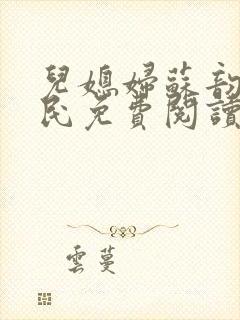 兒媳婦蘇韵
民免費閱讀
雲蔓